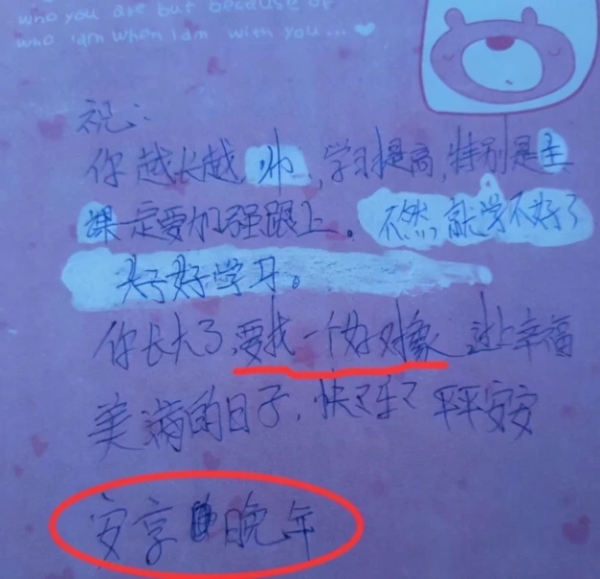 who you are but because of
who iam when I am with you...
祝:
你越长越帅,学习提高,特别是主
课一定要加强跟上。不然,就学不好了
好好学习。
你长大了,要找一个好对象 过上幸福
美满的日子,快快乐乐 平平安安
安享晚年